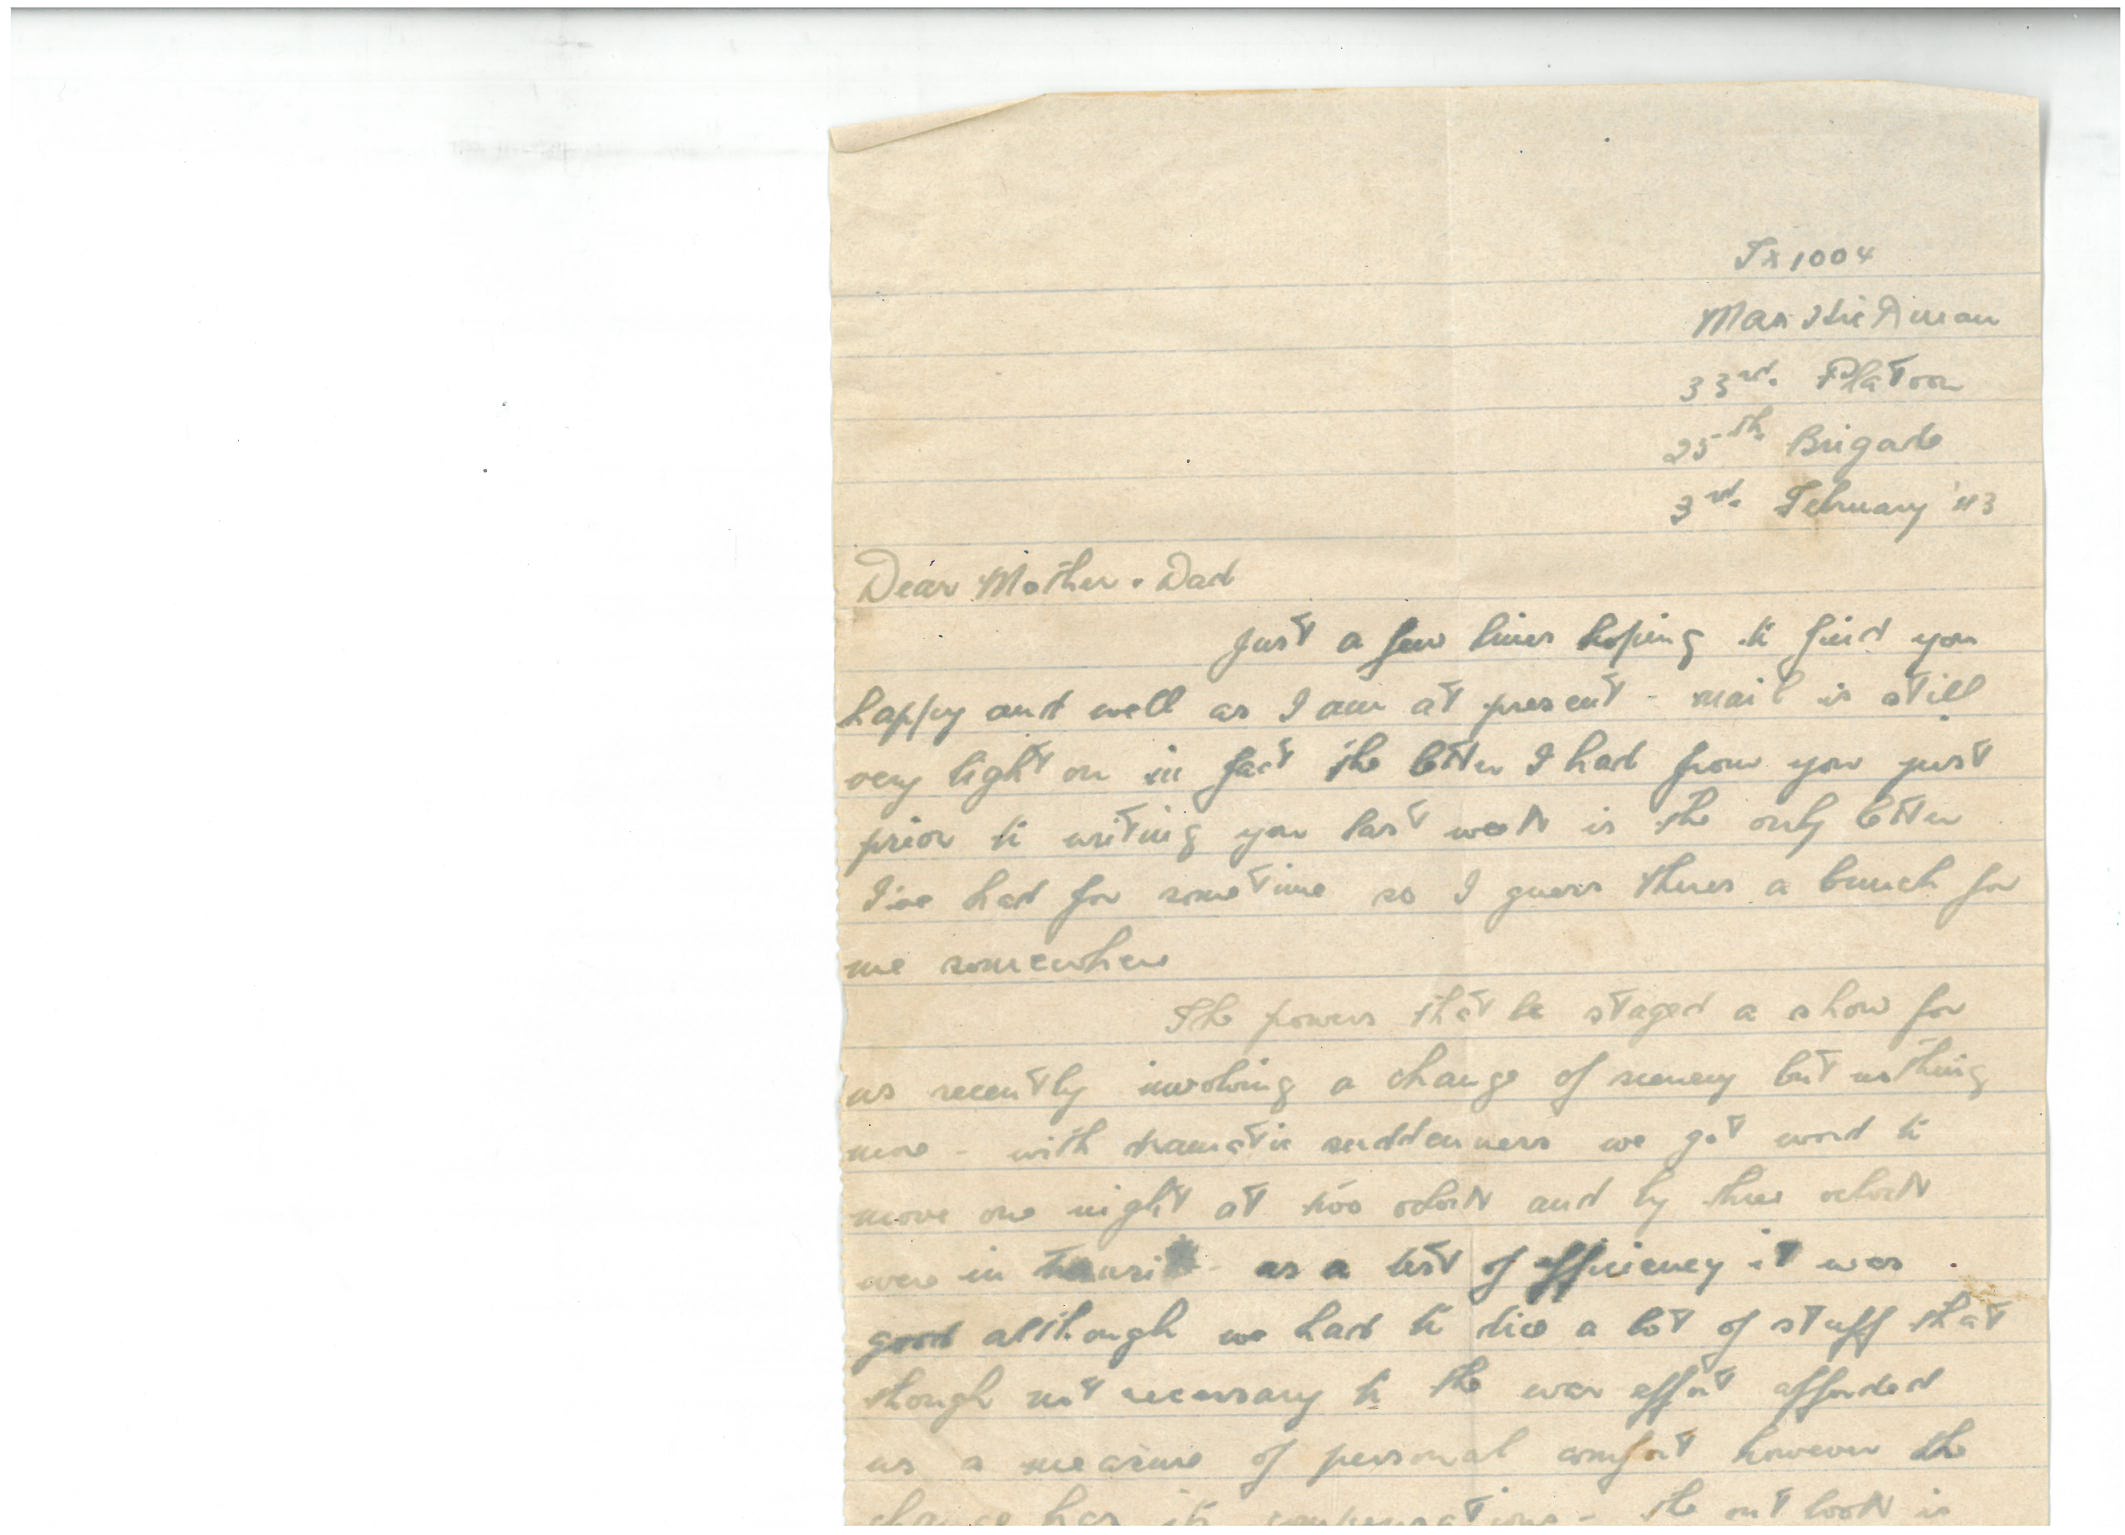 Tx1004
Max
33rd. Platoon
25th. Brigade
3rd. February '43
Dear Mother . Dad
Just a few lines hoping to find you
happy and well as I am at present - mail is still
very light on in fact the letter I had from you just
prior to writing you last week is the only letter
I've had for sometime so I guess theres a bunch for
me somewhere
The powers that be staged a show for
us recently involving a change of scenery but nothing
more - with dramatic suddenness we got word to
move one night at two oclock and by three oclock
were in transit - as a test of efficiency it was
good although we had to a lot of stuff that
though not necessary to the war effort afforded
us a measure of personal comfort however the
change has its compensations - the outlook is